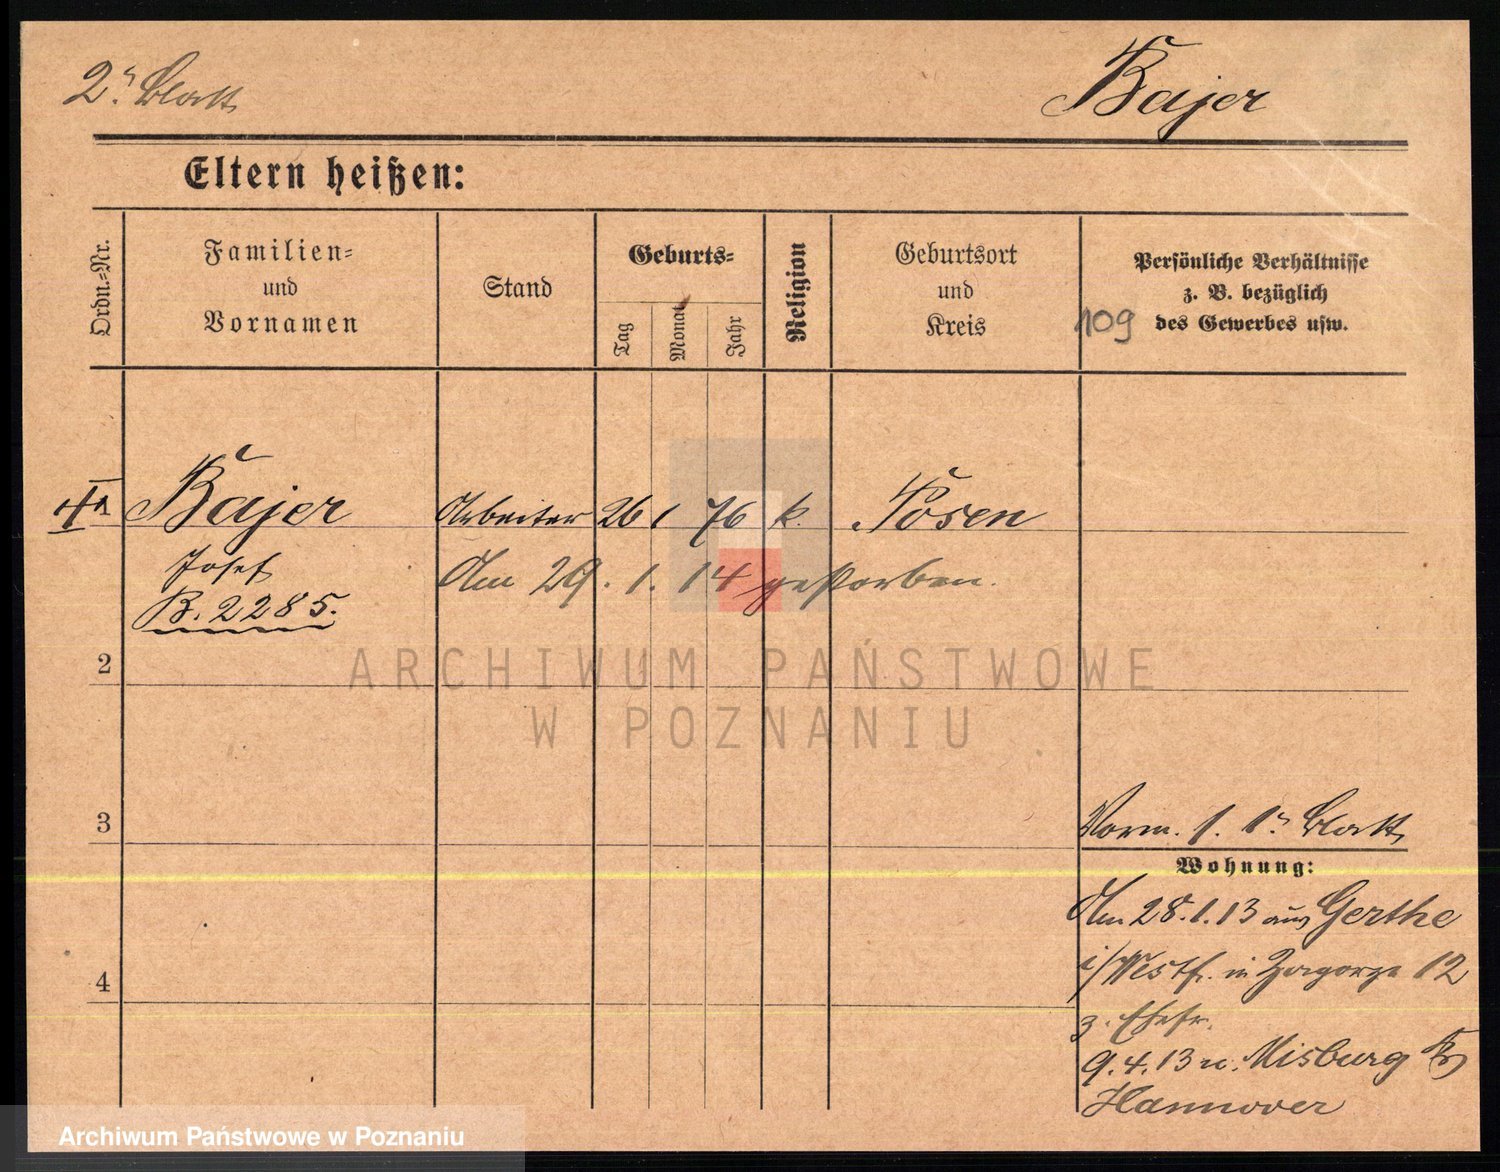 2s Blatt
Bajer
Eltern heißen:
Ordn.-Nr.
Familien-
und
Vornamen
Stand
Geburts-
Tag
Monat
Jahr
Religion
Geburtsort
und
Kreis
Persönliche Verhältnisse
z. B. bezüglich
des Gewerbes usw.
109
Bajer Arbeiter 26 1 76 k. Posen
Josef
B. 2285.
Am 29. 1. 14 gestorben.
2
3
4
Vorm. s. 1s Blatt
Wohnung:
Am 28.1.13 aus Gerthe
i/Westf. in Zagorze 12
z. Ehefr.
9.4.13 n. Misburg Kr
Hannover
ARCHIWUM PAŃSTWOWE
W POZNANIU
Archiwum Państwowe w Poznaniu